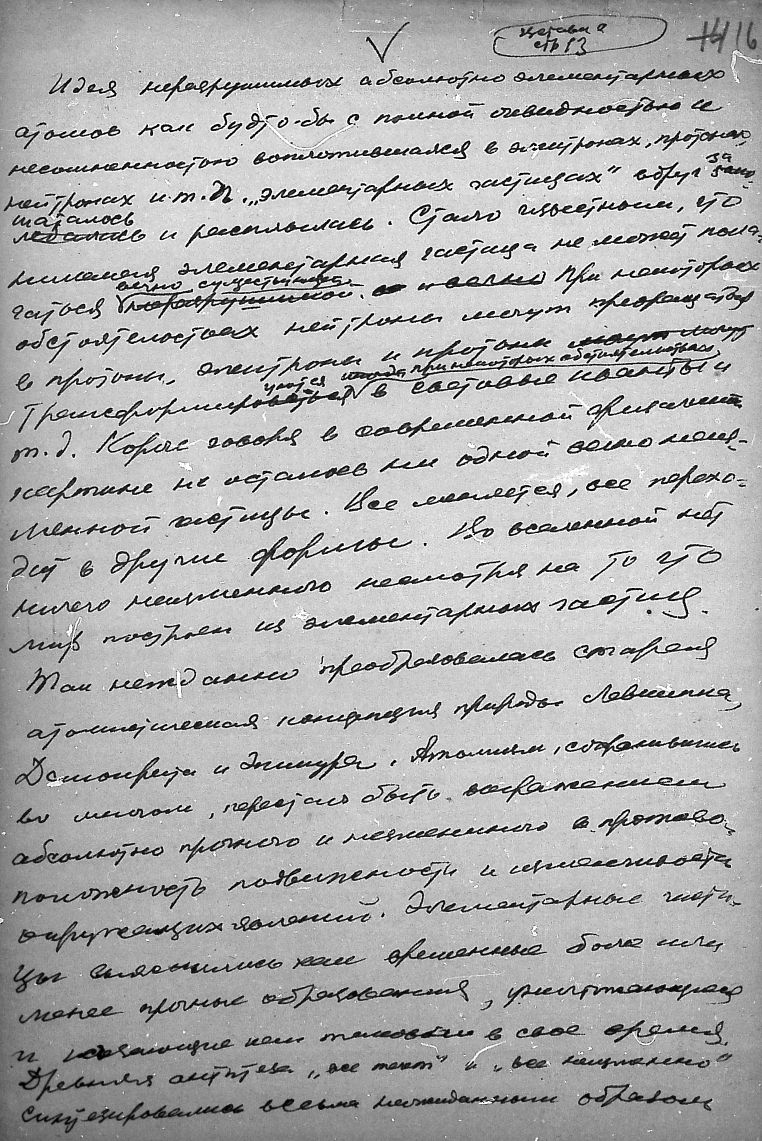 вставка
стр 13
16
V
Идея неразрушимых абсолютно элементарных
атомов как будто-бы с полной очевидностью и
несомненностью воплотившаяся в электронах, протонах,
нейтронах и т.д. „элементарных частицах" вдруг зa
шаталось
и расплылась. Стало известным, что
никакая элементарная частица не может пола-
гаться вечно существующей. При некоторых
обстоятельствах нейтроны могут превращаться
в протоны, электроны и протоны могут
при некоторых обстоятельствах
Трансформироваться в световые кванты и
т.д. Короче говоря в современной физической
картине не осталось ни одной вечно неиз-
менной частицы. Все меняется, все перехо-
дит в другие формы. Во вселенной нет
ничего неизменного несмотря на то что
мир построен из элементарных частиц.
Так нежданно преобразовалась старая
атомистическая концепция природы Левкиппа,
Демокрита и Эпикура. Атомизм, сохранившись
во многом, перестал быть выражением
абсолютно прочного и неизменного в противо-
положность подвижности и изменчивости
окружающих явлений. Элементарные части-
цы выяснились как временные более или
менее прочные образования, уничтожающиеся
и в свое время.
Древняя антитеза „все течет" и „все неизменно"
синтезировались весьма неожиданным образом